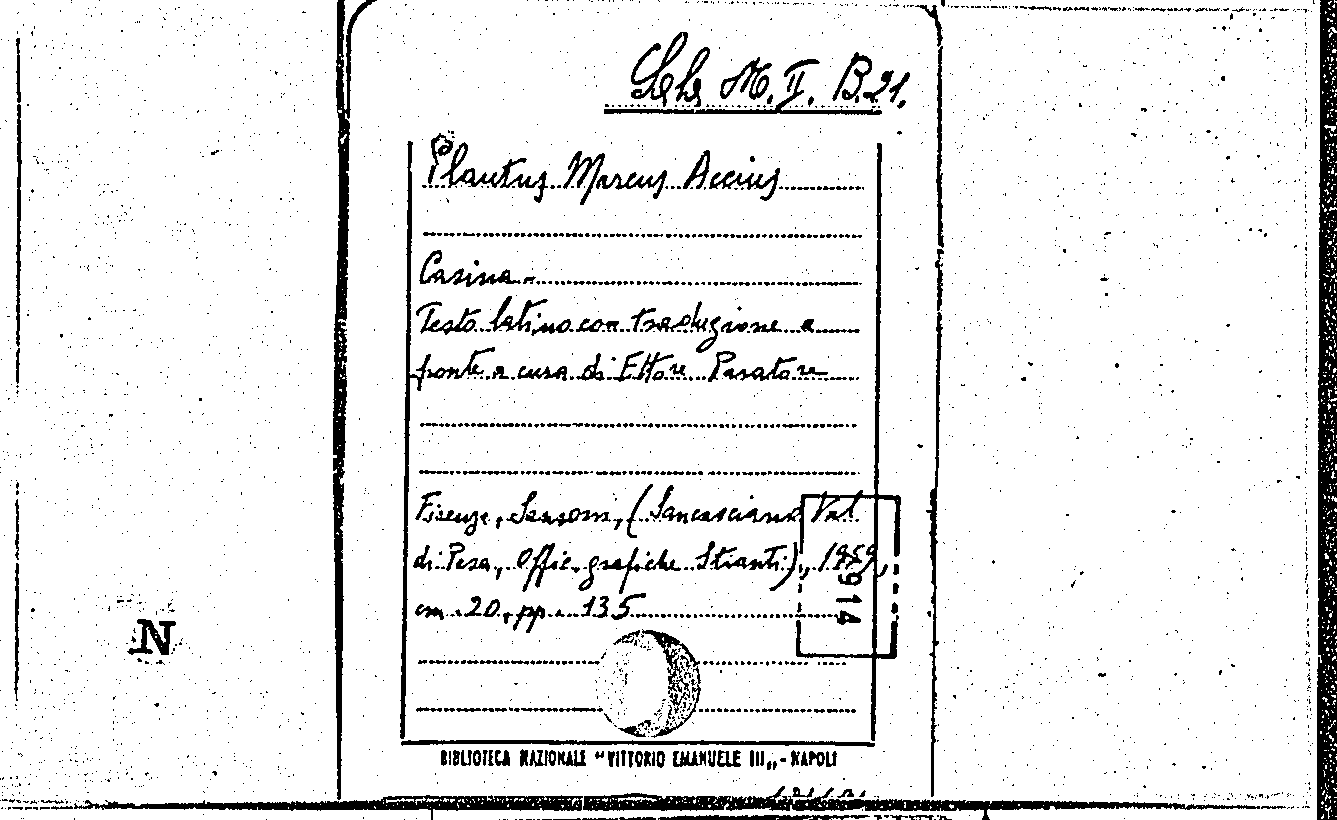 M. II. B.21.
Plautus Marcus Accius
Casina -
Testo latino con traduzione a
fronte a cura di Ettore Paratore
Firenze, Sansoni, (Sancasciano Val
di Pesa, Offic. grafiche Stianti), 1959,
cm. 20, pp. 135
914
N
BIBLIOTECA NAZIONALE "VITTORIO EMANUELE III„ - NAPOLI